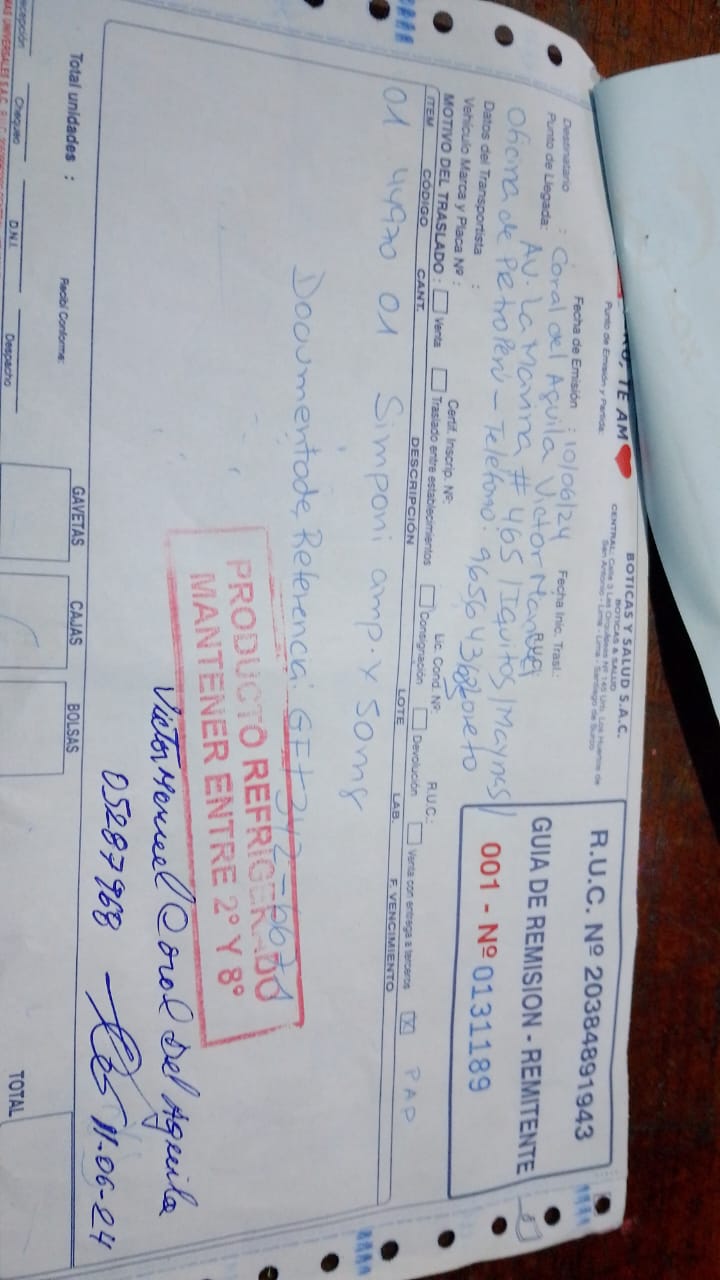 TE AM
BOTICAS Y SALUD S.A.C.
BOTICAS & SALUD
CENTRAL: Calle 3 Las Orquídeas Nº 145 Urb. Los Huertos de
San Antonio - Lima - Lima - Santiago de Surco
Punto de Emisión y Partida:
R.U.C. Nº 20384891943
GUIA DE REMISION - REMITENTE
001 - Nº 0131189
Fecha de Emisión : 10/06/24 Fecha Inic. Trasl.:
Destinatario : Coral del Aguila Victor Manuel R.U.C.
Punto de Llegada: AV. La Marina # 465 / Iquitos / Maynas /
Oficina de PetroPerú - Teléfono: Loreto
Datos del Transportista :
Vehículo Marca y Placa Nº : Certif. Inscrip. Nº: Lic. Cond. Nº: R.U.C.:
MOTIVO DEL TRASLADO : Venta Traslado entre establecimientos Consignación Devolución Venta con entrega a terceros X PAP
ITEM CÓDIGO CANT. DESCRIPCIÓN LOTE LAB. F. VENCIMIENTO
01 44970 01 Simponi amp. x 50mg
Documento de Referencia:
PRODUCTO REFRIGERADO
MANTENER ENTRE 2° Y 8°
Victor Manuel Coral Del Aguila
05287968 11-06-24
Total unidades : Recibí Conforme: GAVETAS CAJAS BOLSAS TOTAL
Chequeo D.N.I. Despacho